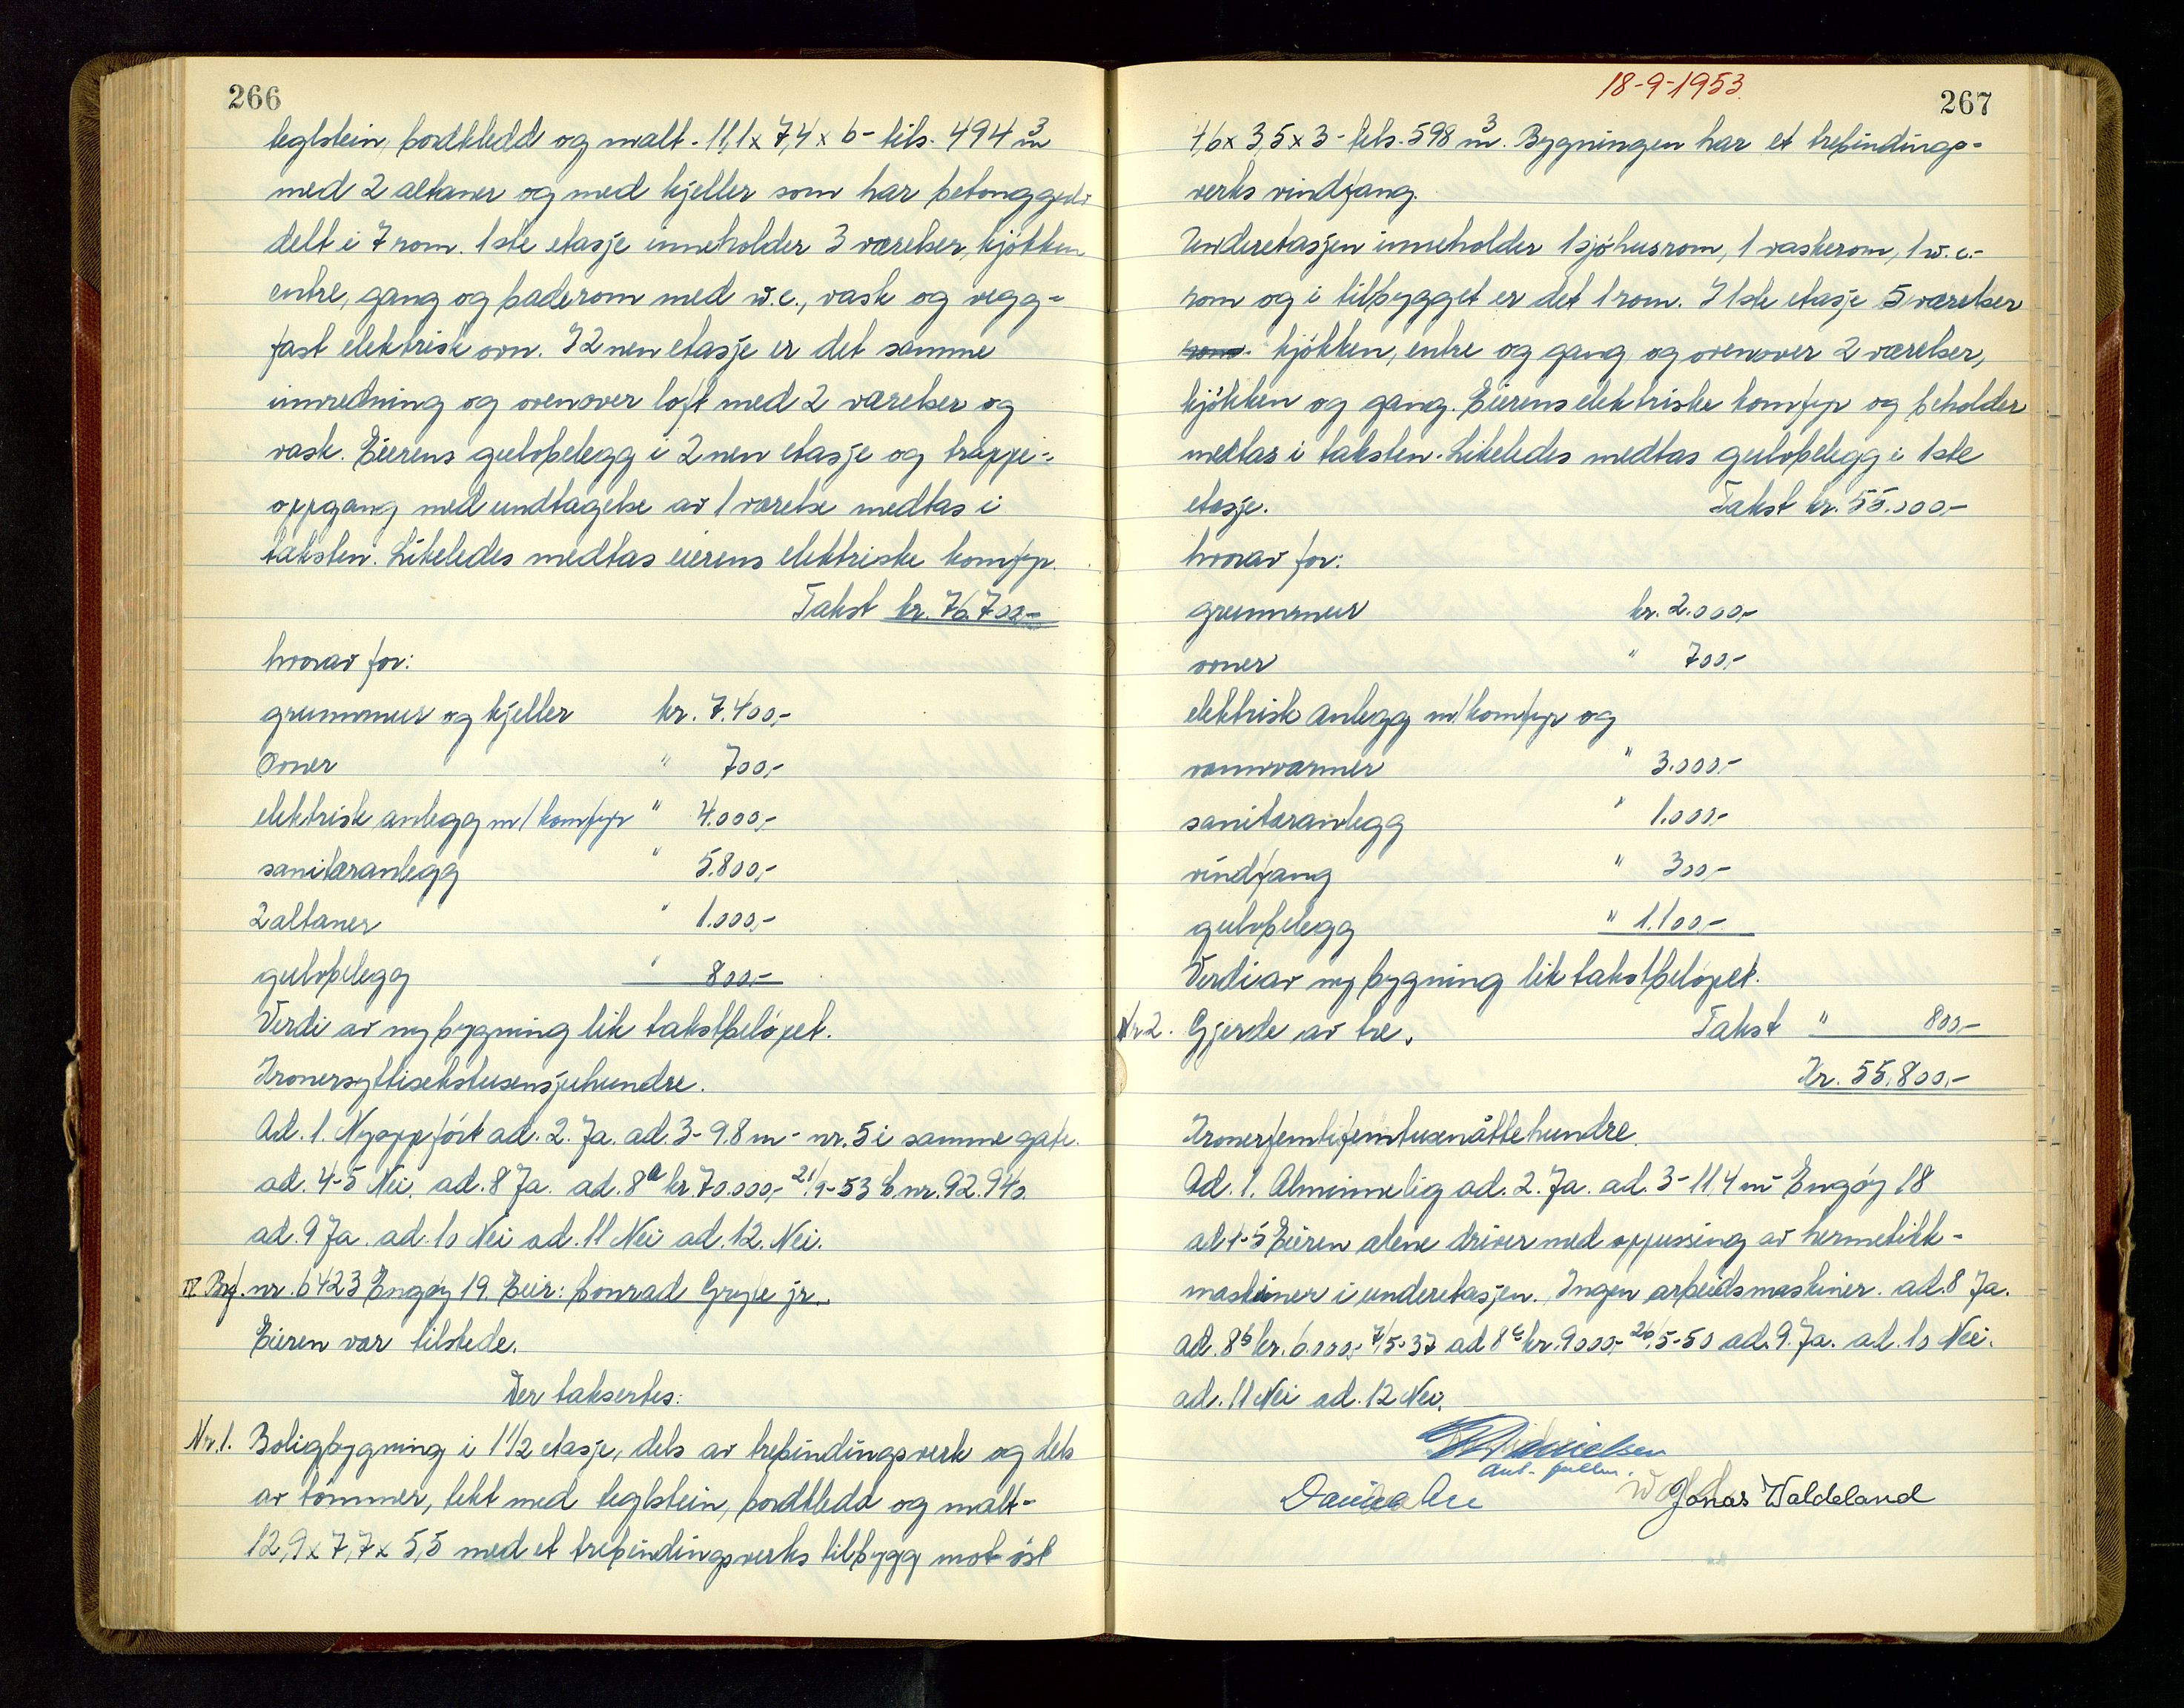 266
teglstein, bordkledd og malt - 11,1 x 7,4 x 6 - tils. 494 m³
med 2 altaner og med kjeller som har betonggulv
delt i 7 rom. 1ste etasje inneholder 3 værelser, kjøkken
entre, gang og baderom med w.c., vask og vegg-
fast elektrisk ovn. I 2nen etasje er det samme
innredning og ovenover loft med 2 værelser og
vask. Eierens gulvbelegg i 2nen etasje og trappe-
oppgang med undtagelse av 1 værelse medtas i
taksten. Likeledes medtas eierens elektriske komfyr.
Takst kr. 76.700-
hvorav for:
grunnmur og kjeller kr. 7.400,-
Ovner " 700,-
elektrisk anlegg m/komfyr " 4.000,-
sanitæranlegg " 5.800,-
2 altaner " 1.000,-
gulvbelegg " 800,-
Verdi av ny bygning lik takstbeløpet.
Kronersyttisekstusensjuhundre.
Ad. 1. Nyoppført ad. 2. Ja. ad. 3 - 9.8 m - nr. 5 i samme gate.
ad. 4-5 Nei. ad. 8 Ja. ad. 8a kr 70.000,- 21/9-53 b.nr. 92.940.
ad. 9 Ja. ad. 10 Nei ad. 11 Nei ad. 12. Nei.
IV. Brf. nr. 6423 Engøy 19. Eier: Conrad Gryte jr.
Eieren var tilstede.
Der taksertes:
Nr. 1. Boligbygning i 1 1/2 etasje, dels av trebindingsverk og dels
av tømmer, tekt med teglstein, bordkledd og malt-
12,9 x 7,7 x 5,5 med et trebindingsverks tilbygg mot øst
18-9-1953
267
4,6 x 3,5 x 3 - tils. 598 m³. Bygningen har et trebindings-
verks vindfang.
Underetasjen inneholder 1 sjøhusrom, 1 vaskerom, 1 w.c.-
rom og i tilbygget er det 1 rom. I 1ste etasje 5 værelser
kjøkken, entre og gang og ovenover 2 værelser,
kjøkken og gang. Eierens elektriske komfyr og beholder
medtas i taksten. Likeledes medtas gulvbelegg i 1ste
etasje. Takst kr. 55.000-
hvorav for:
grunnmur kr. 2.000,-
ovner " 700,-
elektrisk anlegg m/komfyr og
vannvarmer " 3.000,-
sanitæranlegg " 1.000,-
vindfang " 300,-
gulvbelegg " 1.100,-
Verdi av ny bygning lik takstbeløpet.
Nr 2. Gjerde av tre. Takst " 800,-
Kr. 55.800,-
Kronerfemtifemtusenåttehundre.
Ad. 1. Alminnelig ad. 2. Ja. ad. 3 - 11,4 m - Engøy 18
ad 4-5 Eieren alene driver med oppussing av hermetikk-
maskiner i underetasjen. Ingen arbeidsmaskiner. ad. 8 Ja.
ad. 8b kr. 6.000,- 7/5-37 ad 8c kr. 9000,- 26/5-50 ad. 9. Ja. ad. 10 Nei.
ad. 11 Nei ad. 12 Nei.
Danielsen
Jonas Waldeland